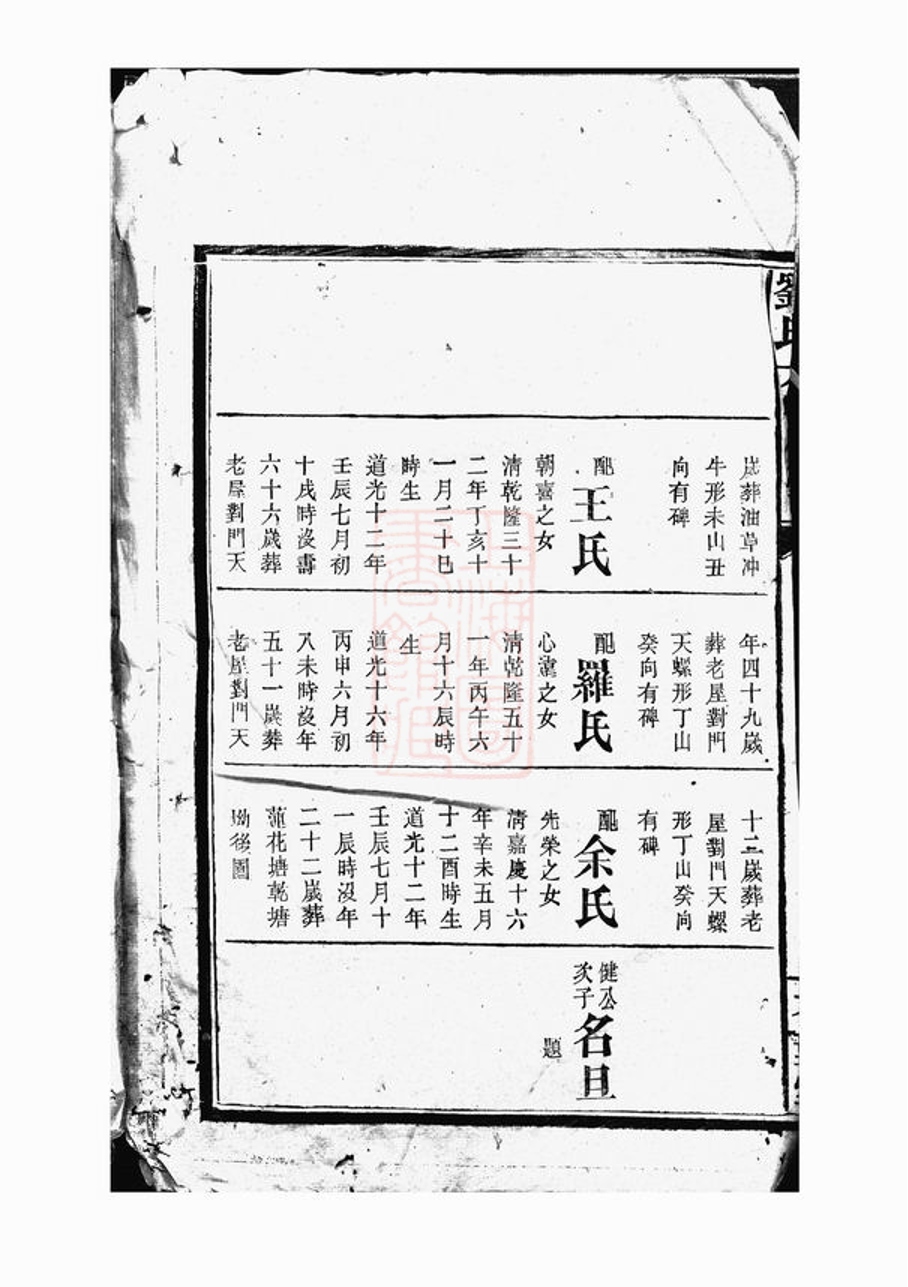 劉氏
歲葬油草冲
牛形未山丑
向有碑
配王氏
朝喜之女
清乾隆三十
二年丁亥十
一月二十巳
時生
道光十二年
壬辰七月初
十戌時沒壽
六十六歲葬
老屋對門天
年四十九歲
葬老屋對門
天螺形丁山
癸向有碑
配羅氏
心之女
清乾隆五十
一年丙午六
月十六辰時
生
道光十六年
丙申六月初
八未時沒年
五十一歲葬
老屋對門天
十二歲葬老
屋對門天螺
形丁山癸向
有碑
配余氏
先榮之女
清嘉慶十六
年辛未五月
十二酉時生
道光十二年
壬辰七月十
一辰時沒年
二十二歲葬
蓮花塘乾塘
坳後園
健公
次子
名旦
題